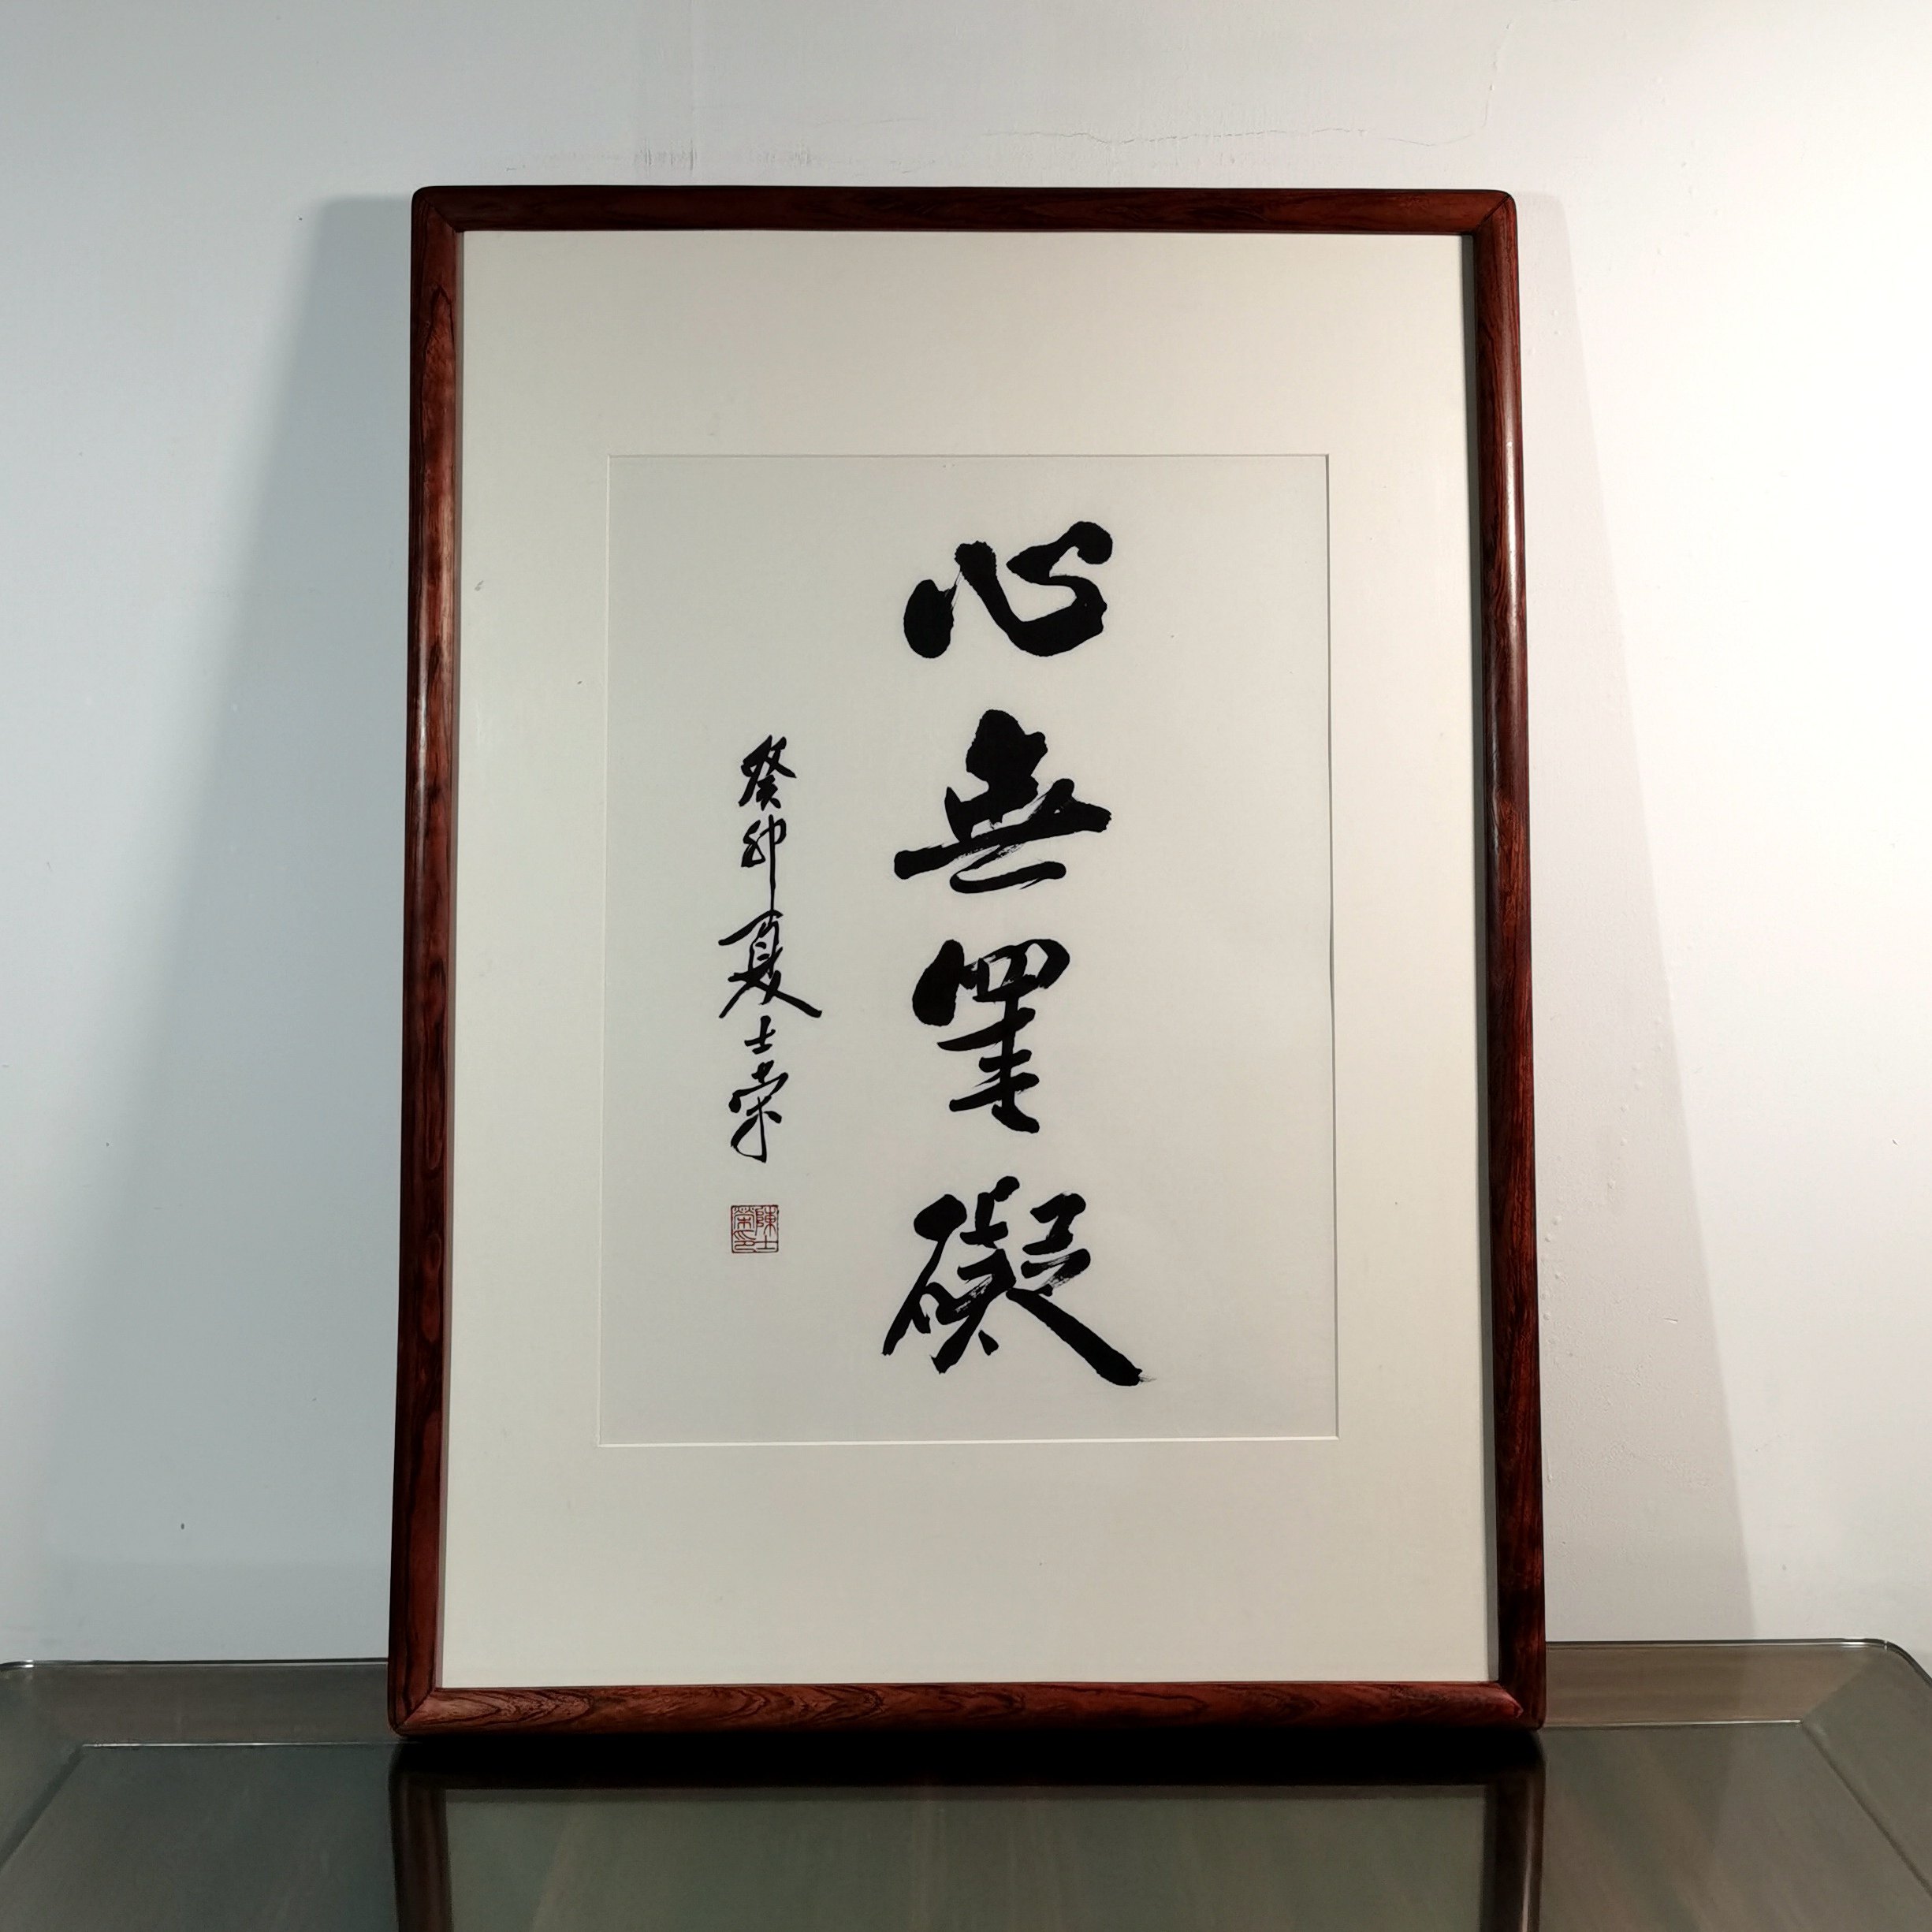 心無罣礙
癸卯夏士荣
陳士
榮印